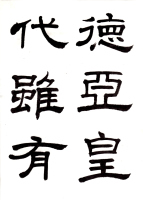 德亞皇
代雖有